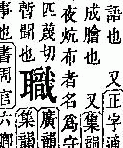 語也　又正字通
成膾也　又集韻
夜炕布者名爲守
匹蔑切
暫聞也
職
廣韻
集韻
事也書周官六卿